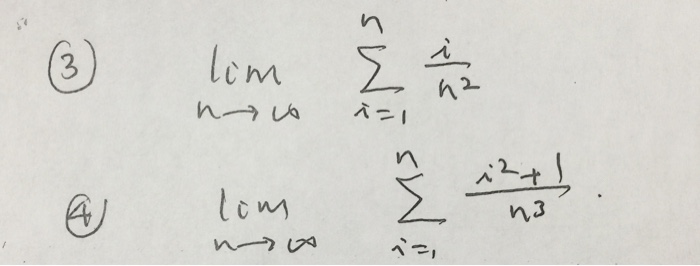 ③ lim n→∞ ∑ i=1 n i/n²
④ lim n→∞ ∑ i=1 n (i²+1)/n³.